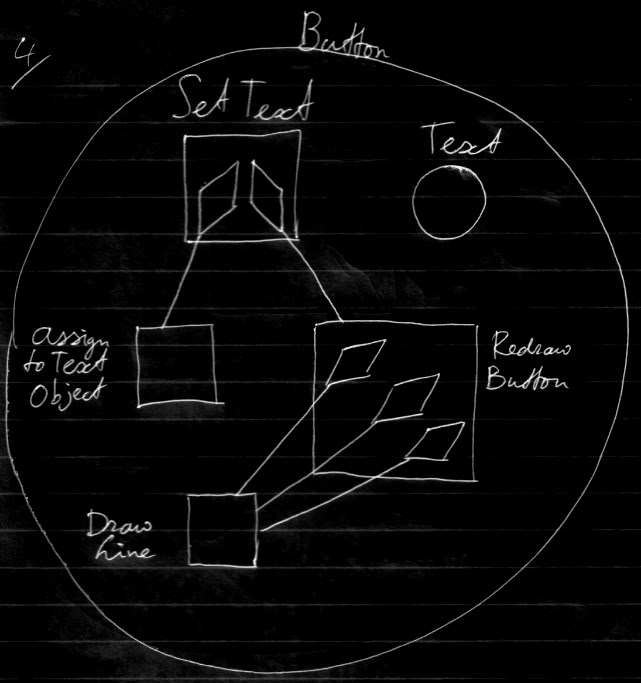 4/
Button
Set Text
Text
assign
to Text
Object
Redraw
Button
Draw
Line